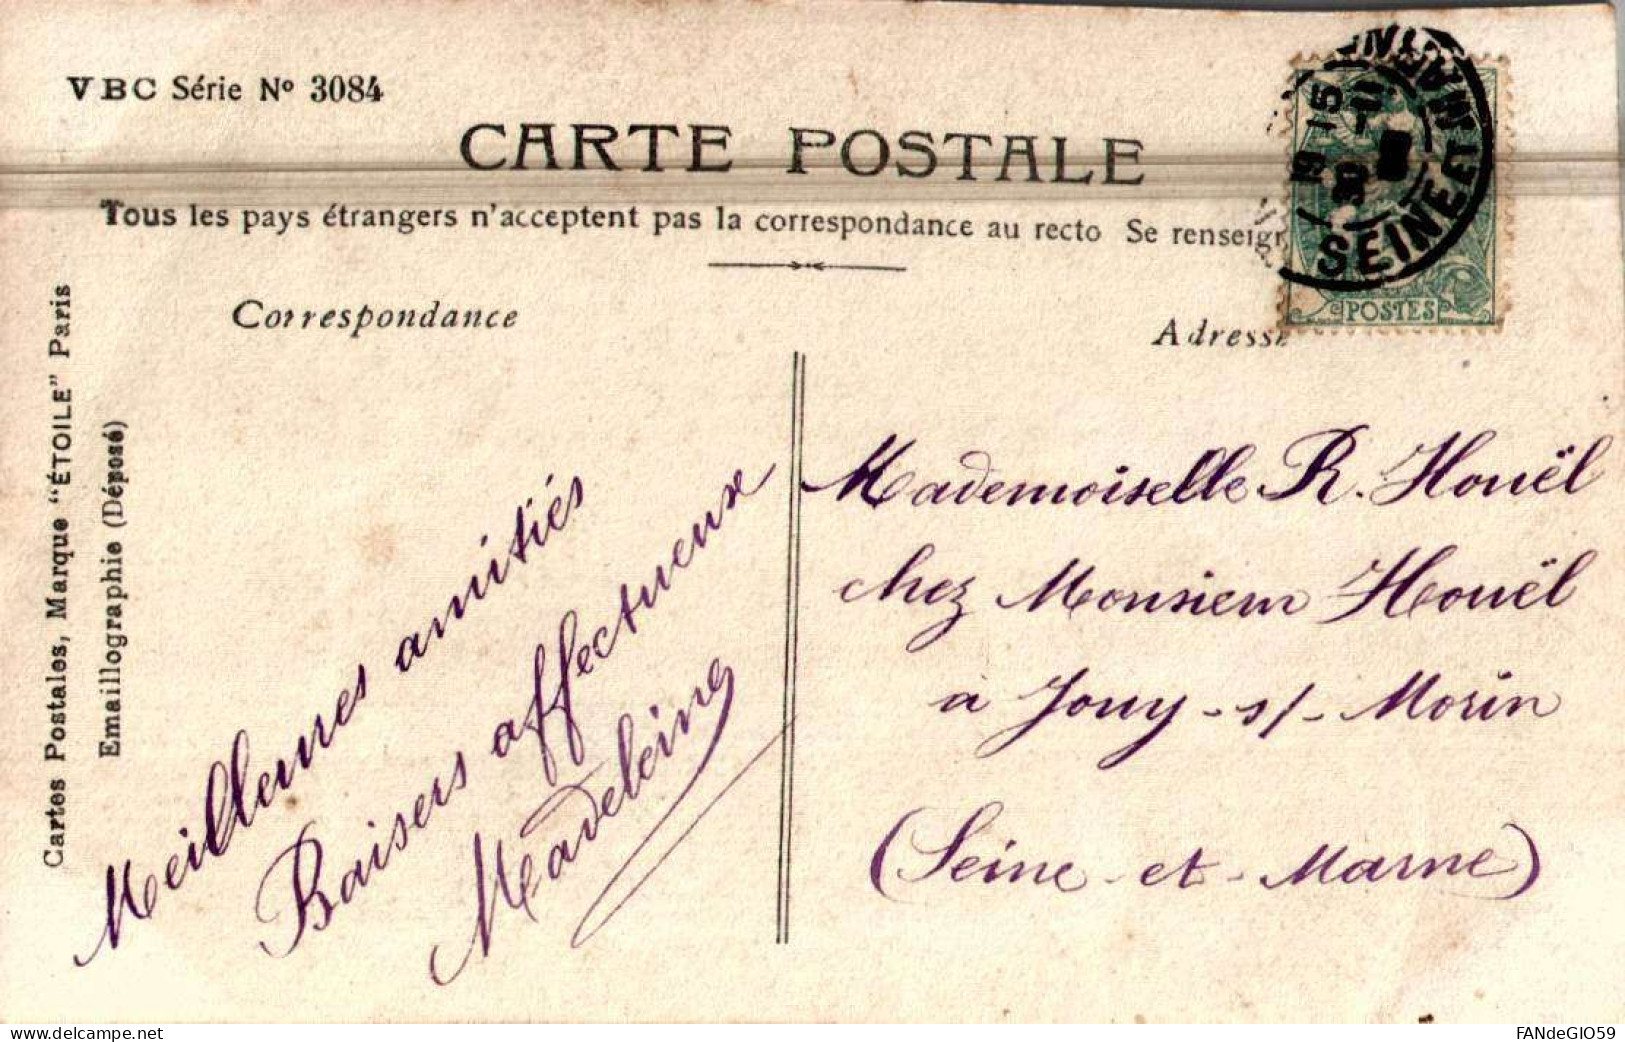 VBC Série Nº 3084
CARTE POSTALE
Tous les pays étrangers n'acceptent pas la correspondance au recto Se renseigr
Correspondance
Adresse
Cartes Postales, Marque "ÉTOILE" Paris
Emaillographie (Déposé)
POSTES
SEINE ET MARNE
15
Meilleures amitiés
Baisers affectueux
Madeleine
Mademoiselle R. Houël
chez Monsieur Houël
à Jouy-s/-Morin
(Seine-et-Marne)
delcampe.net
FANdeGIO59